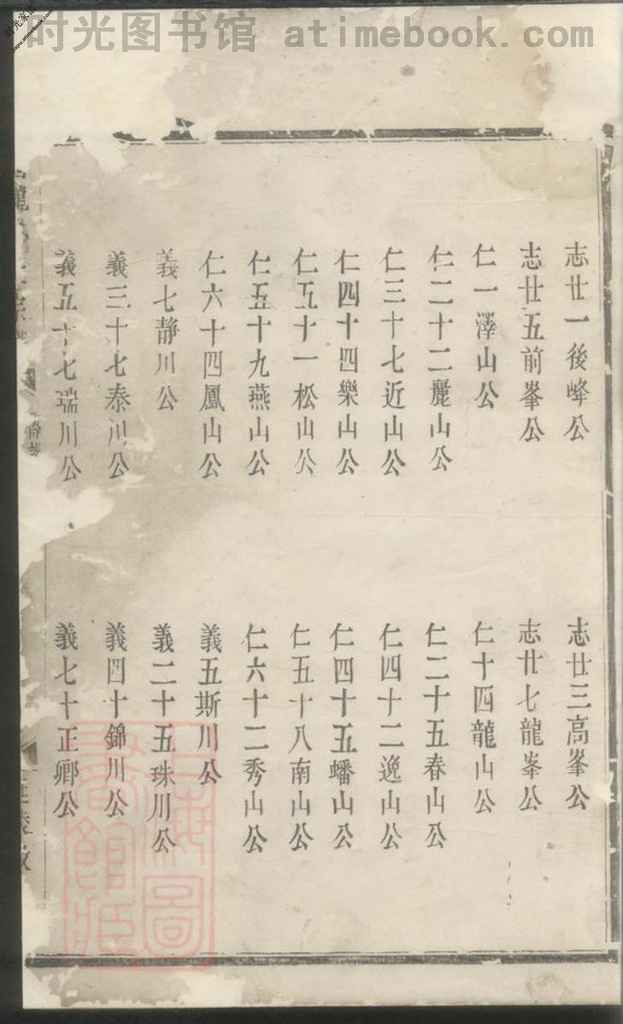 时光图书馆 atimebook.com
志廿一後峰公
志廿三高峯公
志廿五前峯公
志廿七龍峯公
仁一澤山公
仁十四龍山公
仁二十二麗山公
仁二十五春山公
仁三十七近山公
仁四十二逸山公
仁四十四樂山公
仁四十五蟠山公
仁五十一松山公
仁五十八南山公
仁五十九燕山公
仁六十二秀山公
仁六十四鳳山公
義五斯川公
義七静川公
義二十五珠川公
義三十七泰川公
義四十錦川公
義五十七瑞川公
義七十正卿公